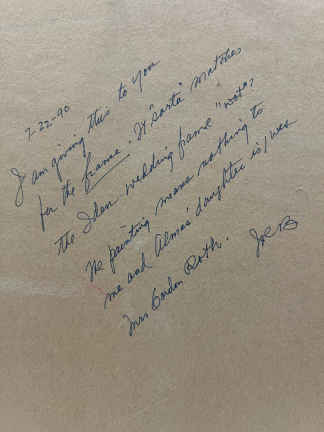 7-22-90
I am giving this to you
for the frame. It "sorta" matches
the Iden wedding frame
The painting means nothing to
me and Alma's daughter is/was
Mrs Gordon Roth. Joe B